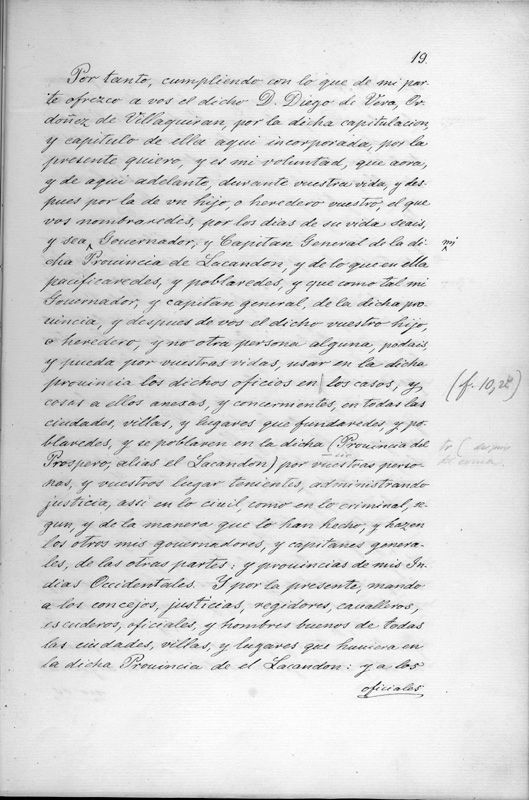 19.
Por tanto, cumpliendo con lo que de mi par-
te ofrezco a vos el dicho D. Diego de Vera, Or-
doñez de Villaquiran, por la dicha capitulacion
y capitulo de ella aqui incorporada, por la
presente quiero, y es mi voluntad, que aora,
y de aqui adelante, durante vuestra vida, y des-
pues por la de vn hijo, o heredero vuestro, el que
vos nombraredes, por los dias de su vida seais,
y sea ^ Governador, y Capitan General de la di- mi
cha Provincia de Lacandon, y de lo que en ella
pacificaredes, y poblaredes, y que como tal mi
Governador, y capitan general, de la dicha pro-
uincia, y despues de vos el dicho vuestro hijo,
o heredero, y no otra persona alguna, podais
y pueda por vuestras vidas, usar en la dicha
prouincia los dichos oficios en los casos, y, (f. 10, 2ª)
cosas a ellos anexas, y concernientes, en todas las
ciudades, villas, y lugares que fundaredes, y po-
blaredes, y se poblaren en la dicha (Prouincia del
Prospero, alias el Lacandon) por vuestras perso-
nas, y vuestros lugar tenientes, administrando
justicia, assi en lo civil, como en lo criminal, se-
gun, y de la manera que lo han hecho, y hazen
los otros mis gouernadores, y capitanes genera-
les, de las otras partes: y prouincias de mis In-
dias Occidentales. Y por la presente, mando
a los concejos, justicias, regidores, cavalleros,
escuderos, oficiales, y hombres buenos de todas
las ciudades, villas, y lugares que huuiera en
la dicha Prouincia de el Lacandon: y a los
oficiales